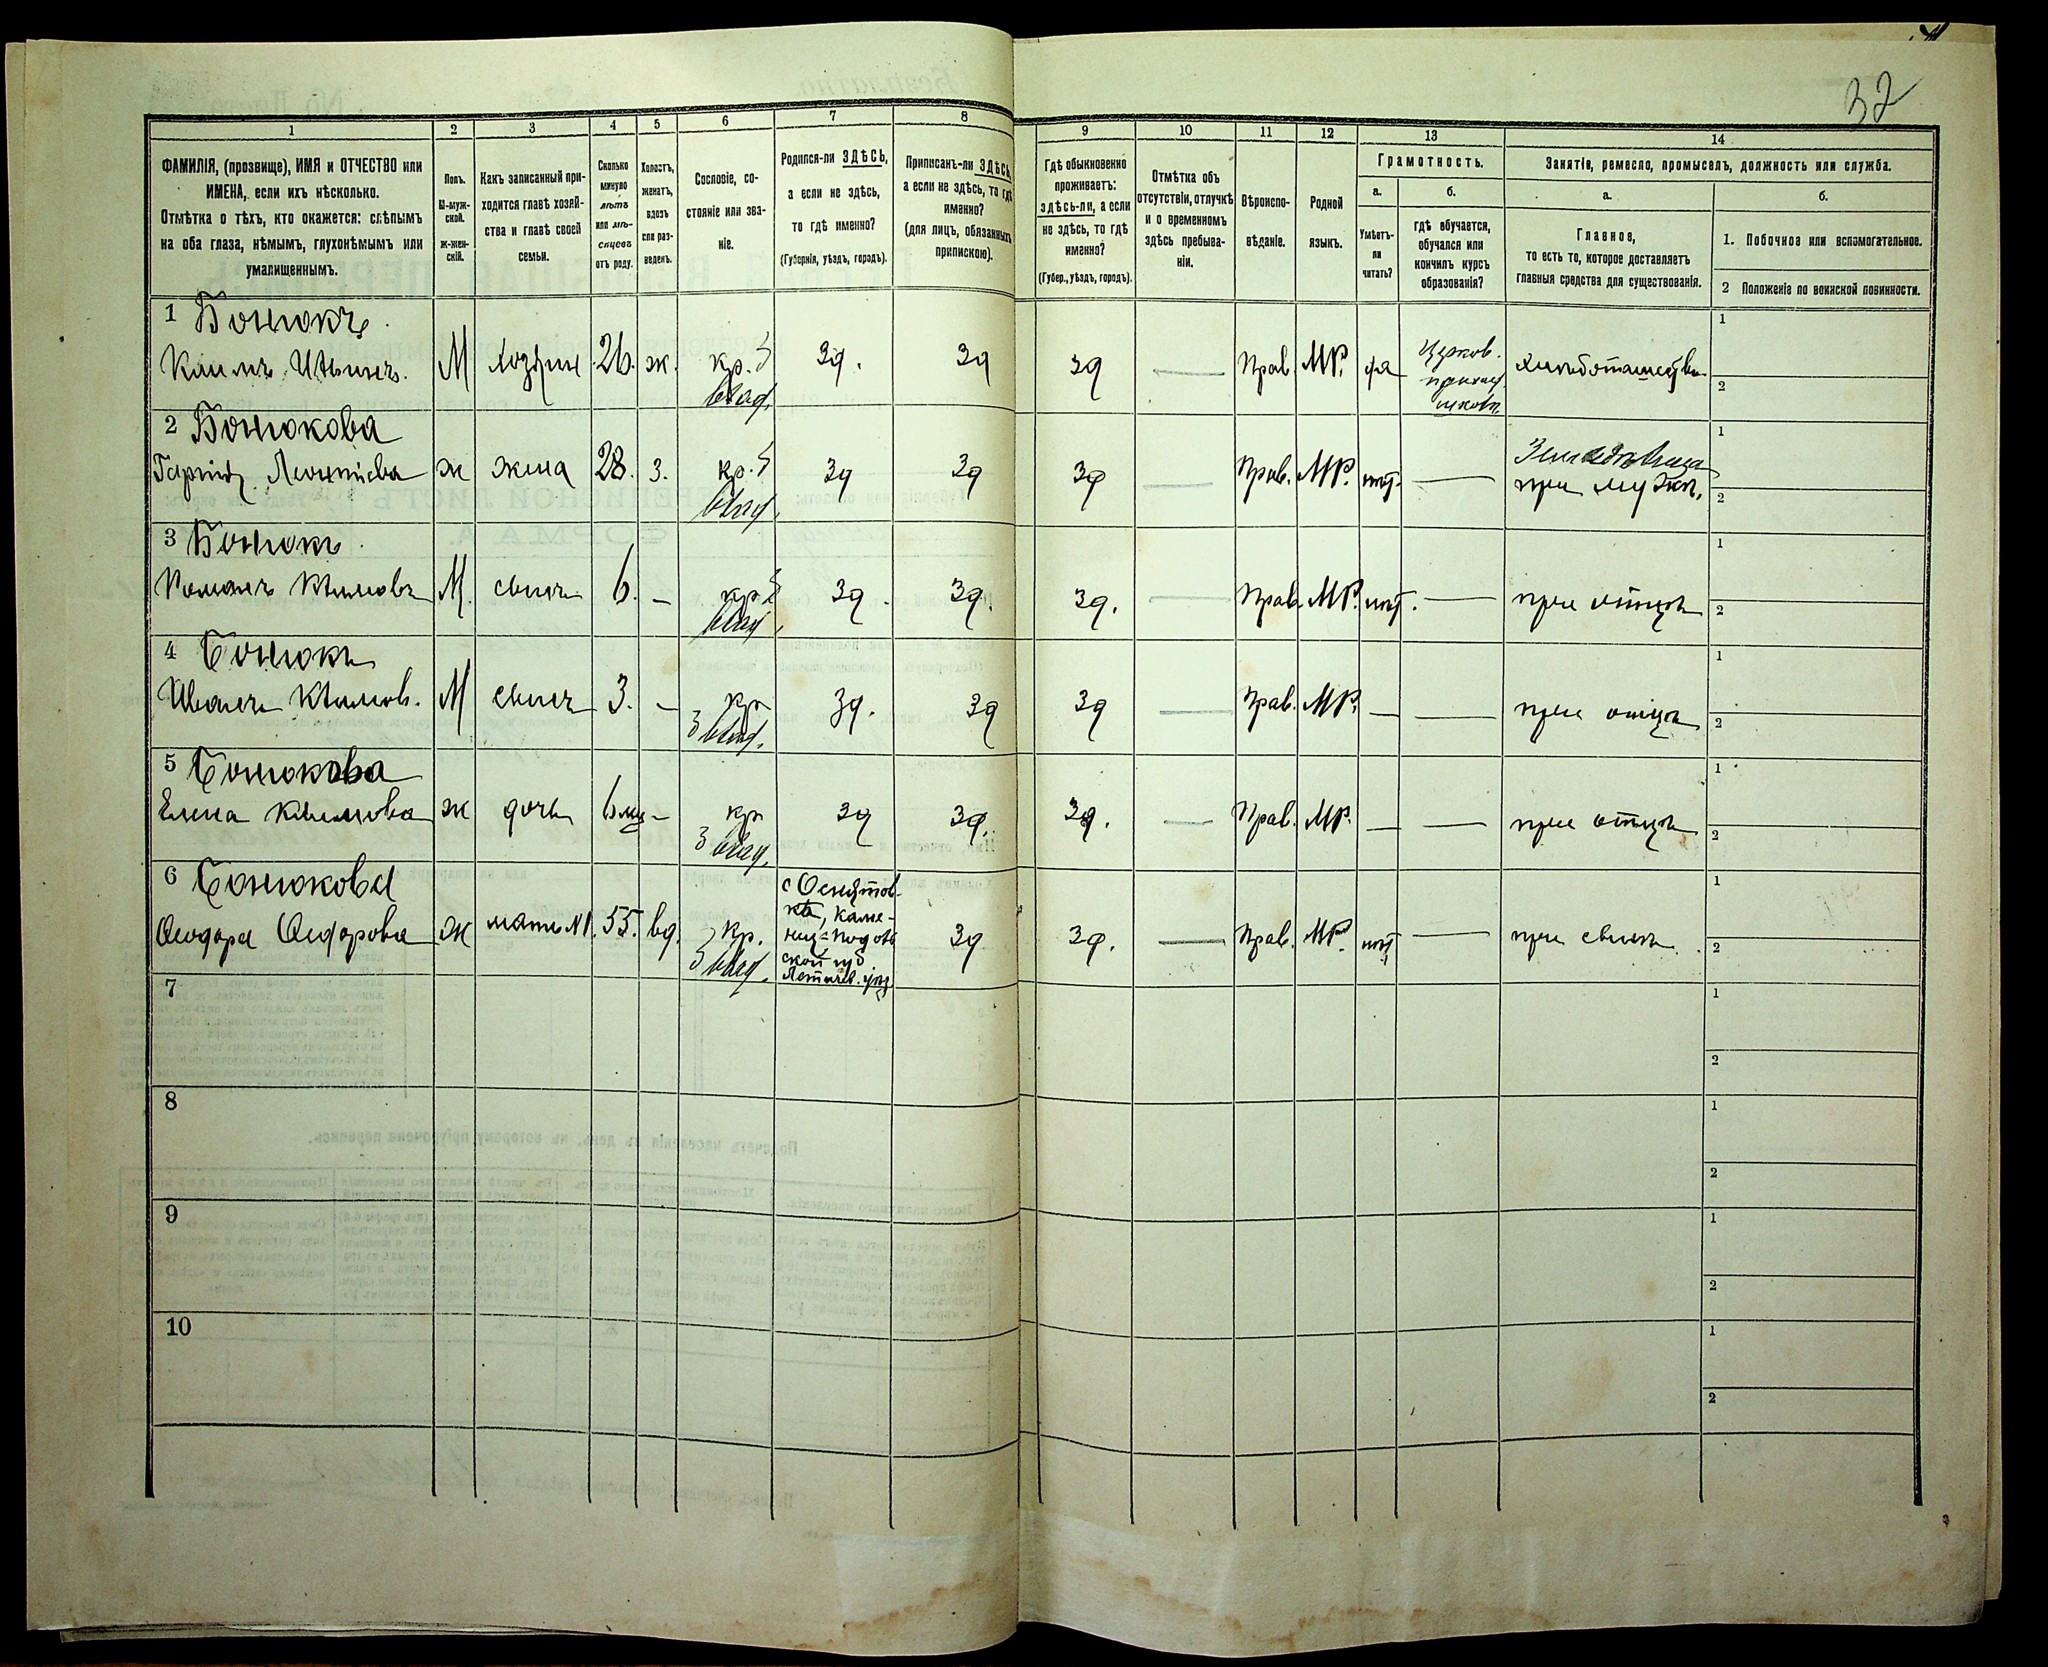 32
1 2 3 4 5 6 7 8 9 10 11 12 13 14
ФАМИЛІЯ, (прозвище), ИМЯ и ОТЧЕСТВО или
ИМЕНА, если ихъ нѣсколько.
Отмѣтка о тѣхъ, кто окажется: слѣпымъ
на оба глаза, нѣмымъ, глухонѣмымъ или
умалишеннымъ.
Полъ.
М-муж-
ской.
ж-жен-
скій.
Какъ записанный при-
ходится главѣ хозяй-
ства и главѣ своей
семьи.
Сколько
минуло
лѣтъ
или мѣ-
сяцевъ
отъ роду.
Холостъ,
женатъ,
вдовъ
или раз-
веденъ.
Сословіе, со-
стояніе или зва-
ніе.
Родился-ли ЗДѢСЬ,
а если не здѣсь,
то гдѣ именно?
(Губернія, уѣздъ, городъ).
Приписанъ-ли ЗДѢСЬ,
а если не здѣсь, то гдѣ
именно?
(для лицъ, обязанныхъ
припискою).
Гдѣ обыкновенно
проживаетъ:
здѣсь-ли, а если
не здѣсь, то гдѣ
именно?
(Губер., уѣздъ, городъ).
Отмѣтка объ
отсутствіи, отлучкѣ
и о временномъ
здѣсь пребыва-
ніи.
Вѣроиспо-
вѣданіе.
Родной
языкъ.
Грамотность.
а. б.
Умѣетъ-
ли
читать?
гдѣ обучается,
обучался или
кончилъ курсъ
образованія?
Занятіе, ремесло, промыселъ, должность или служба.
а. б.
Главное,
то есть то, которое доставляетъ
главныя средства для существованія.
1. Побочное или вспомогательное.
2 Положеніе по воинской повинности.
1 Бонюкъ
Климъ М хозяинъ 26. ж. кр. зд. зд зд — Прав. МР. да
влад.
1
2
2 Бонюкова
Леонтіева ж жена 28. з. кр. зд зд зд — Прав. МР. нѣт. —
влад.
при мужѣ.
1
2
3 Бонюкъ
Романъ Климовъ М. сынъ 6. — кр. зд. зд. зд. — Прав. МР. нѣт. — при отцѣ
влад.
1
2
4 Бонюкъ
Иванъ Климов. М сынъ 3. — кр зд. зд зд — Прав. МР. — — при отцѣ
влад.
1
2
5 Бонюкова
Елена Климова ж дочь 6 мц — кр зд зд. зд. — Прав. МР. — — при отцѣ
влад.
1
2
6 Бонюкова
Ѳеодора Ѳедорова ж мать №1. 55. вд. кр. зд зд. — Прав. МР. нѣт — при сынѣ
влад.
Каме-
ниц=Подоль
ской губ
Летичев. уѣзд
1
2
7
1
2
8
1
2
9
1
2
10
1
2